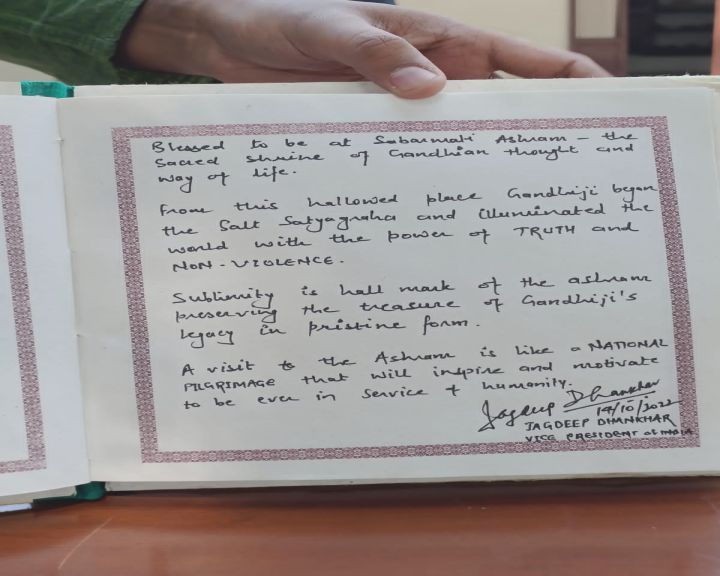 Blessed to be at Sabarmati Ashram – the
Sacred Shrine of Gandhian thought and
way of life.
From this hallowed place Gandhiji began
the Salt Satyagraha and illuminated the
world with the power of TRUTH and
NON-VIOLENCE.
Sublimity is hall mark of the ashram
preserving the treasure of Gandhiji's
legacy in pristine form.
A visit to the Ashram is like a NATIONAL
PILGRIMAGE that will inspire and motivate
to be ever in service of humanity.
Jagdeep Dhankhar
14/10/2022
JAGDEEP DHANKHAR
VICE PRESIDENT of INDIA